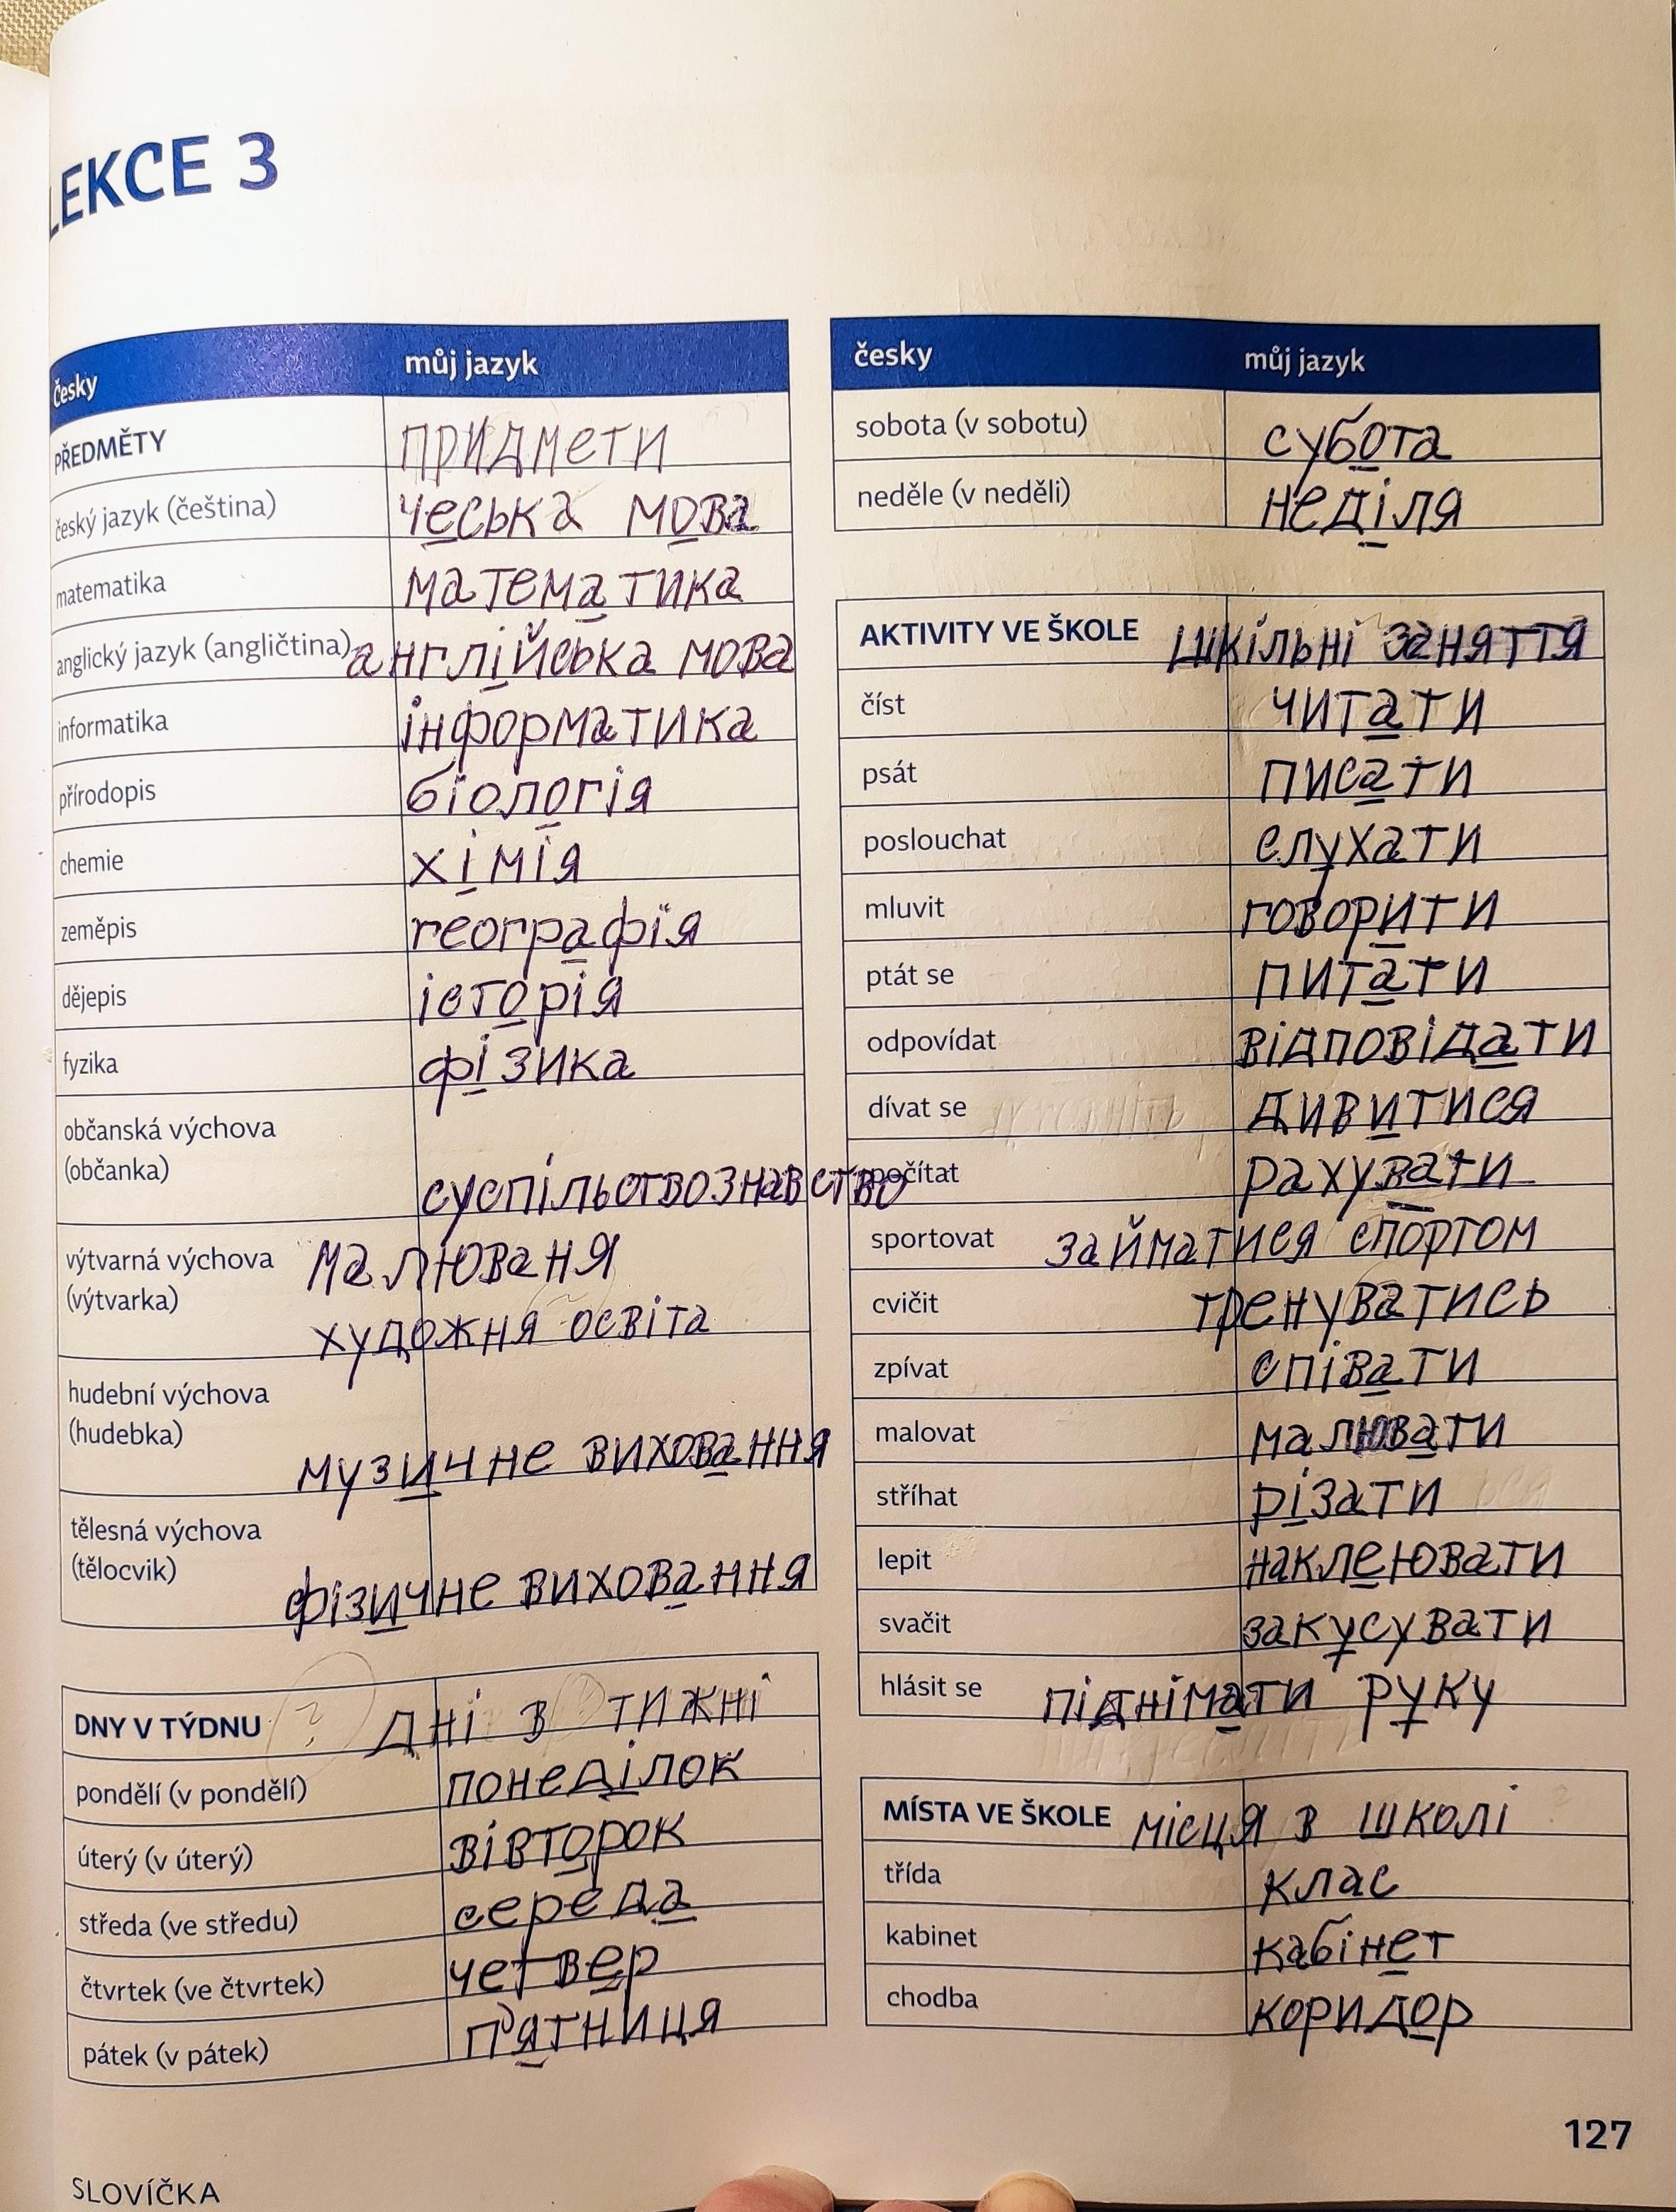 LEKCE 3
česky můj jazyk
PŘEDMĚTY придмети
český jazyk (čeština) чеська мова
matematika математика
anglický jazyk (angličtina) англійська мова
informatika інформатика
přírodopis біологія
chemie хімія
zeměpis географія
dějepis історія
fyzika фізика
občanská výchova
(občanka) суспільствознавство
výtvarná výchova малюваня
(výtvarka) художня освіта
hudební výchova
(hudebka) музичне виховання
tělesná výchova
(tělocvik) фізичне виховання
DNY V TÝDNU дні в тижні
pondělí (v pondělí) понеділок
úterý (v úterý) вівторок
středa (ve středu) середа
čtvrtek (ve čtvrtek) четвер
pátek (v pátek) п'ятниця
česky můj jazyk
sobota (v sobotu) субота
neděle (v neděli) неділя
AKTIVITY VE ŠKOLE шкільні заняття
číst читати
psát писати
poslouchat слухати
mluvit говорити
ptát se питати
odpovídat відповідати
dívat se дивитися
počítat рахувати
sportovat займатися спортом
cvičit тренуватись
zpívat співати
malovat малювати
stříhat різати
lepit наклеювати
svačit закусувати
hlásit se піднімати руку
MÍSTA VE ŠKOLE місця в школі
třída клас
kabinet кабінет
chodba коридор
127
SLOVÍČKA